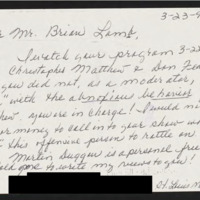 3-23-9
Mr. Brian Lamb,
I watch your program 3-22
Christopher Matthew & Don Fe
you did not, as a moderator,
with the obnoxious behavior
you are in charge! I would
money to call on to your show
this offensive person to rattle on
Martin Duggan is a personal frie
me to write my views to you!
St Louis M